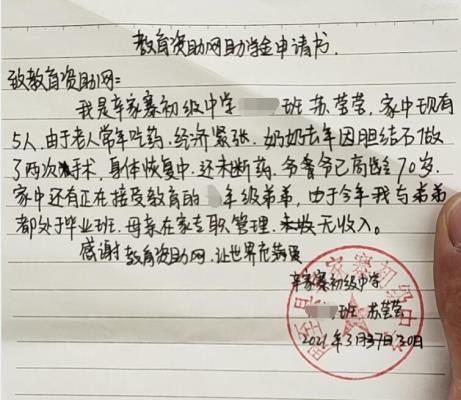 教育资助网助学金申请书.
致教育资助网:
我是辛家寨初级中学 班 苏莹莹,家中现有
5人,由于老人常年吃药,经济紧张,奶奶去年因胆结石做
了两次手术,身体恢复中,还未断药,爷爷已高龄70岁.
家中还有正在接受教育的 年级弟弟,由于今年我与弟弟
都处于毕业班,母亲在家专职管理,无收入。
感谢教育资助网,让世界充满爱
辛家寨初级中学
班 苏莹莹
2021年3月30日
家寨初级中